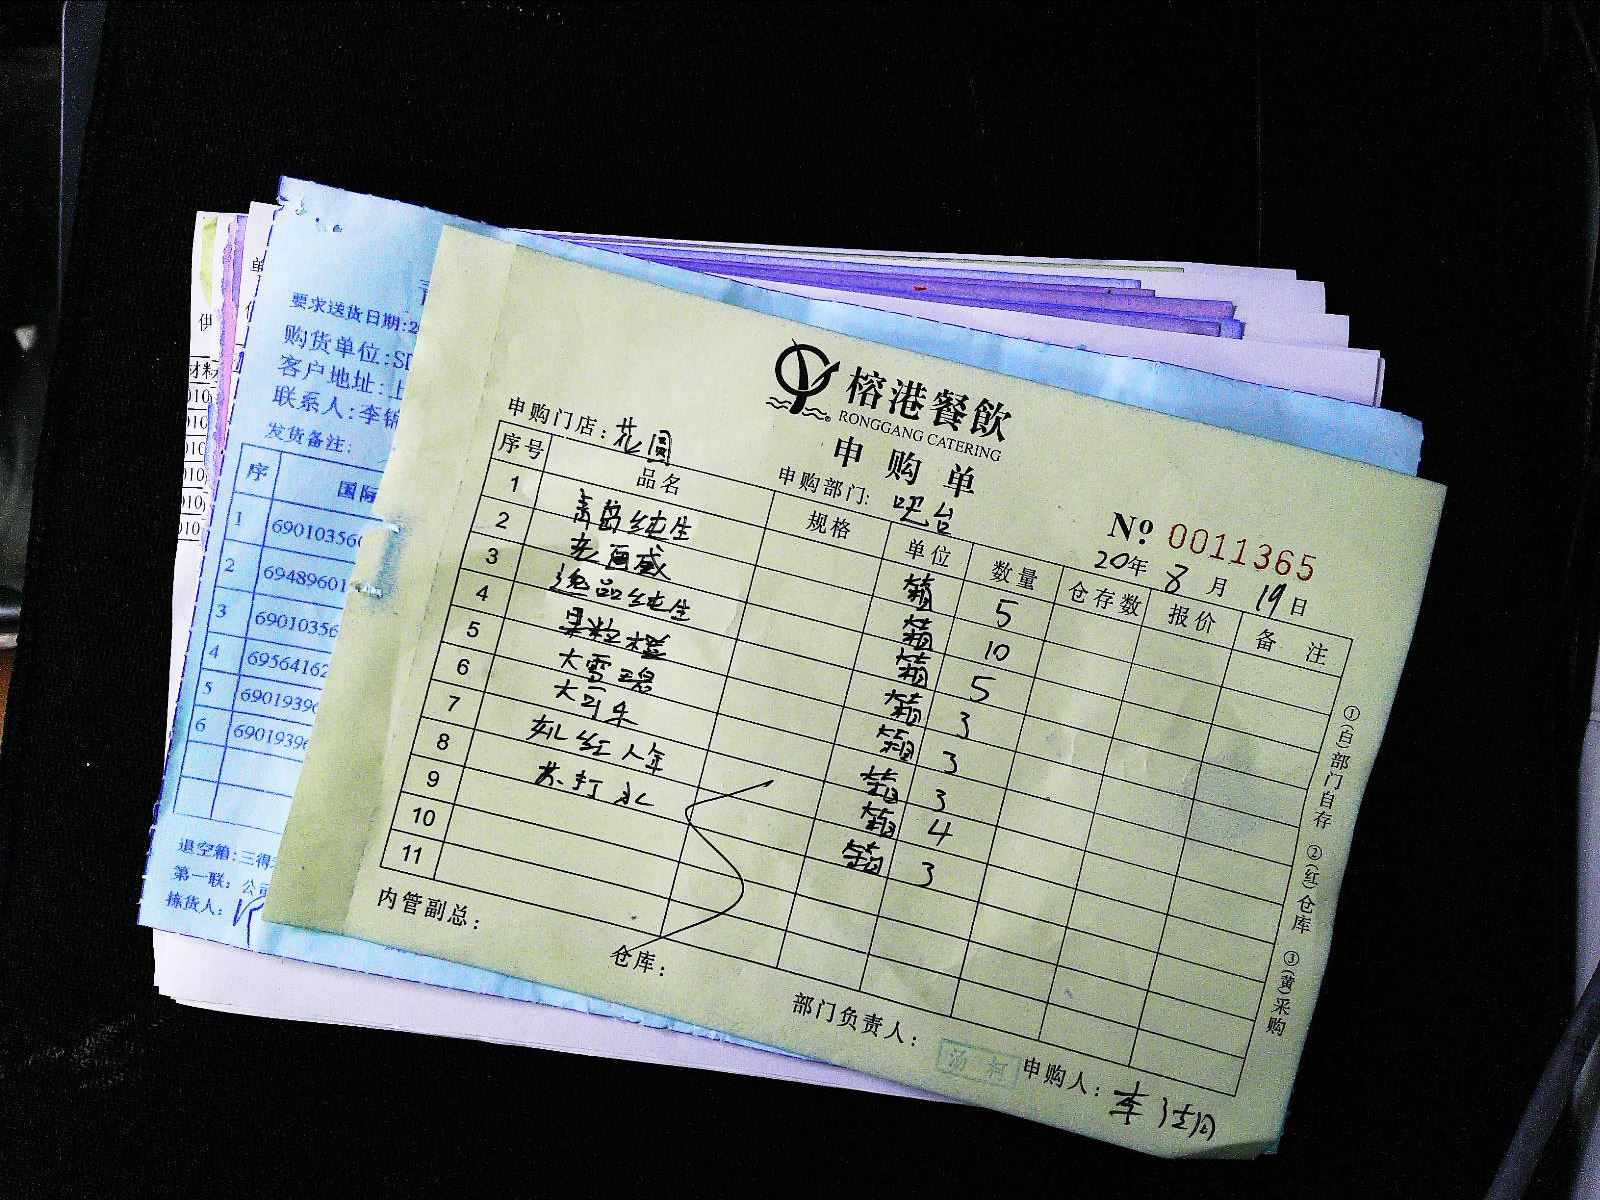 榕港餐飲
RONGGANG CATERING
申购单
申购门店：花園
申购部门：吧台
№ 0011365
20年 8月 19日
序号 品名 规格 单位 数量 仓存数 报价 备注
1 青岛纯生 箱 5
2 老百威 箱 10
3 逸品纯生 箱 5
4 果粒橙 箱 3
5 大雪碧 箱 3
6 大可乐 箱 3
7 女儿红八年 箱 4
8 苏打水 箱 3
9
10
11
①(白)部门自存 ②(红)仓库 ③(黄)采购
内管副总：
仓库：
部门负责人：
汤 柯
申购人：李
要求送货日期:2
购货单位:SD
客户地址:上
联系人:李锦
发货备注:
序 国际
1 690103560
2 69489601
3 69010356
4 69564162
5 6901939
6 6901939
退空箱:三得
第一联: 公司
拣货人:
单
供
材料
010
010
010
010
010
010